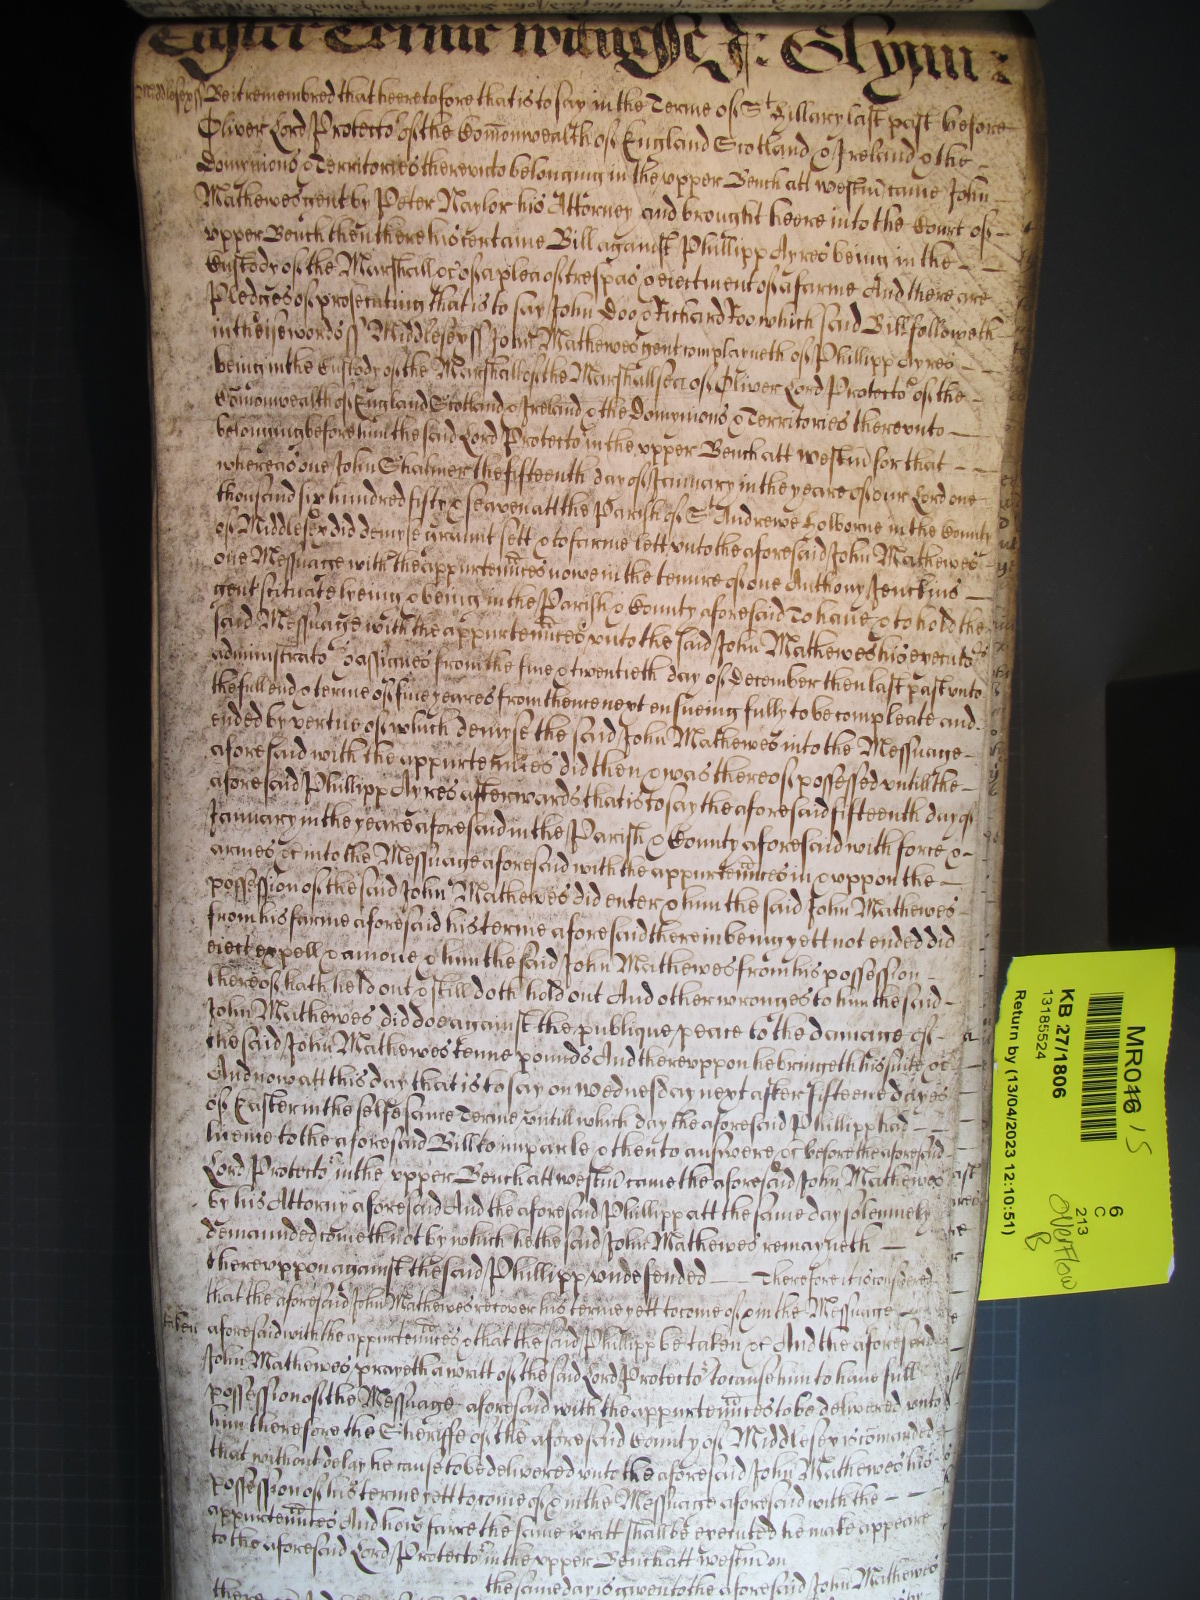 Easter Terme witnesse J: Glynn:
Middlesex ss Be it remembred that heeretofore that is to say in the Terme of St Hillary last past before
Oliver Lord Protector of the Com̄onwealth of England Scotland & Ireland & the
Dominions & Territories therevnto belonging in the vpper Bench att westm̄ came John
Mathewes gent by Peter Naylor his Attorney and brought heere into the Court of
vpper Bench then there his certaine Bill against Phillipp Ayres being in the
Custody of the Marshall &c of a plea of trespas & eiectment of a farme And there are
Pledges of prosecuting that is to say John Doo & Richard Roo which said Bill followeth
in theise words ss Middlesex ss John Mathewes gent complayneth of Phillipp Ayres
being in the Custody of the Marshall of the Marshallsea of Oliver Lord Protector of the
Com̄onwealth of England Scotland & Ireland & the Dominyons & Territories therevnto
belonging before him the said Lord Protector in the vpper Bench att westm̄ for that
whereas one John Shalmer the fifteenth day of January in the yeare of our Lord one
thousand six hundred fifty & seaven att the Parish of St Andrewe Holborne in the County
of Middlesex did demyse graunt sett & to farme lett vnto the aforesaid John Mathewes
one Messuage with the appurten̄nces nowe in the tenure of one Anthony Jenckins
gent scituate lyeing & being in the Parish & County aforesaid To haue & to hold the
said Messuage with the appurten̄nces vnto the said John Mathewes his executors
administrators & assignes from the fiue & twentieth day of December then last past vnto
the full end & terme of fiue yeares from thence next ensueing fully to be compleate and
ended by vertue of which demyse the said John Mathewes into the Messuage
aforesaid with the appurten̄nces did then & was thereof possessed vntill the
aforesaid Phillipp Ayres afterwards that is to say the aforesaid fifteenth day of
January in the yeare aforesaid in the Parish & County aforesaid with force &
armes &c into the Messuage aforesaid with the appurten̄nces in & vppon the
possession of the said John Mathewes did enter & him the said John Mathewes
from his farme aforesaid his terme aforesaid therein being yett not ended did
eiect expell & amoue & him the said John Mathewes from his possession
thereof hath held out & still doth hold out And other wronges to him the said
John Mathewes did doe against the publique peace to the damage of
the said John Mathewes tenne pounds And therevppon he bringeth his suite &c
And now att this day that is to say on wednesday next after fifteene dayes
of Easter in the selfe same Terme vntill which day the aforesaid Phillipp had
licence to the aforesaid Bill to imparle & then to answere &c before the aforesaid
Lord Protector in the vpper Bench att westm̄ came the aforesaid John Mathewes
by his Attorny aforesaid And the aforesaid Phillipp att the same day solemnely
demaunded cometh not by which he the said John Mathewes remayneth
therevppon against the said Phillipp vndefended Therefore it is considered
that the aforesaid John Mathewes recover his terme yett to come of & in the Messuage
taken
aforesaid with the appurten̄nces & that the said Phillipp be taken &c And the aforesaid
John Mathewes prayeth a writt of the said Lord Protector to cause him to haue full
possession of the Messuage aforesaid with the appurten̄nces to be delivered vnto
him therefore the Sheriffe of the aforesaid County of Middlesex is com̄anded
that without delay he cause to be delivered vnto the aforesaid John Mathewes his
possession of his terme yett to come of & in the Messuage aforesaid with the
appurten̄nces And how farre the same writt shall be executed he make appeare
to the aforesaid Lord Protector in the vpper Bench att westm̄ on
the same day is given to the aforesaid John Mathewes
there
MR046 15
KB 27/1806
13185524
Return by (13/04/2023 12:10:51)
6
C
213
overflow
B